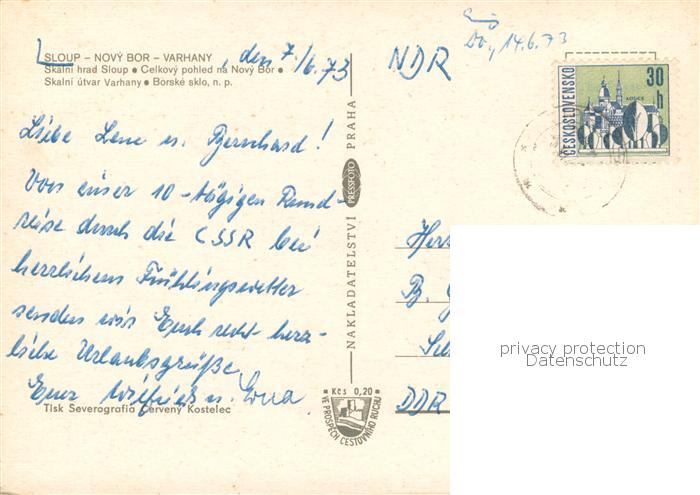 SLOUP – NOVÝ BOR – VARHANY, den 7./6.73
Skalní hrad Sloup • Celkový pohled na Nový Bor •
Skalní útvar Varhany • Borské sklo, n. p.
Liebe Lene u. Bernhard!
Von einer 10-tägigen Rund-
reise durch die CSSR bei
herrlichem Frühlingswetter
senden wir Euch recht herz-
liche Urlaubsgrüße
Euer Wilfried u. Erna
Tisk Severografia Červený Kostelec
NAKLADATELSTVÍ PRESSFOTO PRAHA
• Kčs 0,20 •
VE PROSPĚCH CESTOVNÍHO RUCHU
NDR
Do, 14.6.73
ČESKOSLOVENSKO
30 h
KOŠICE
Herr
B. G
DDR
privacy protection
Datenschutz